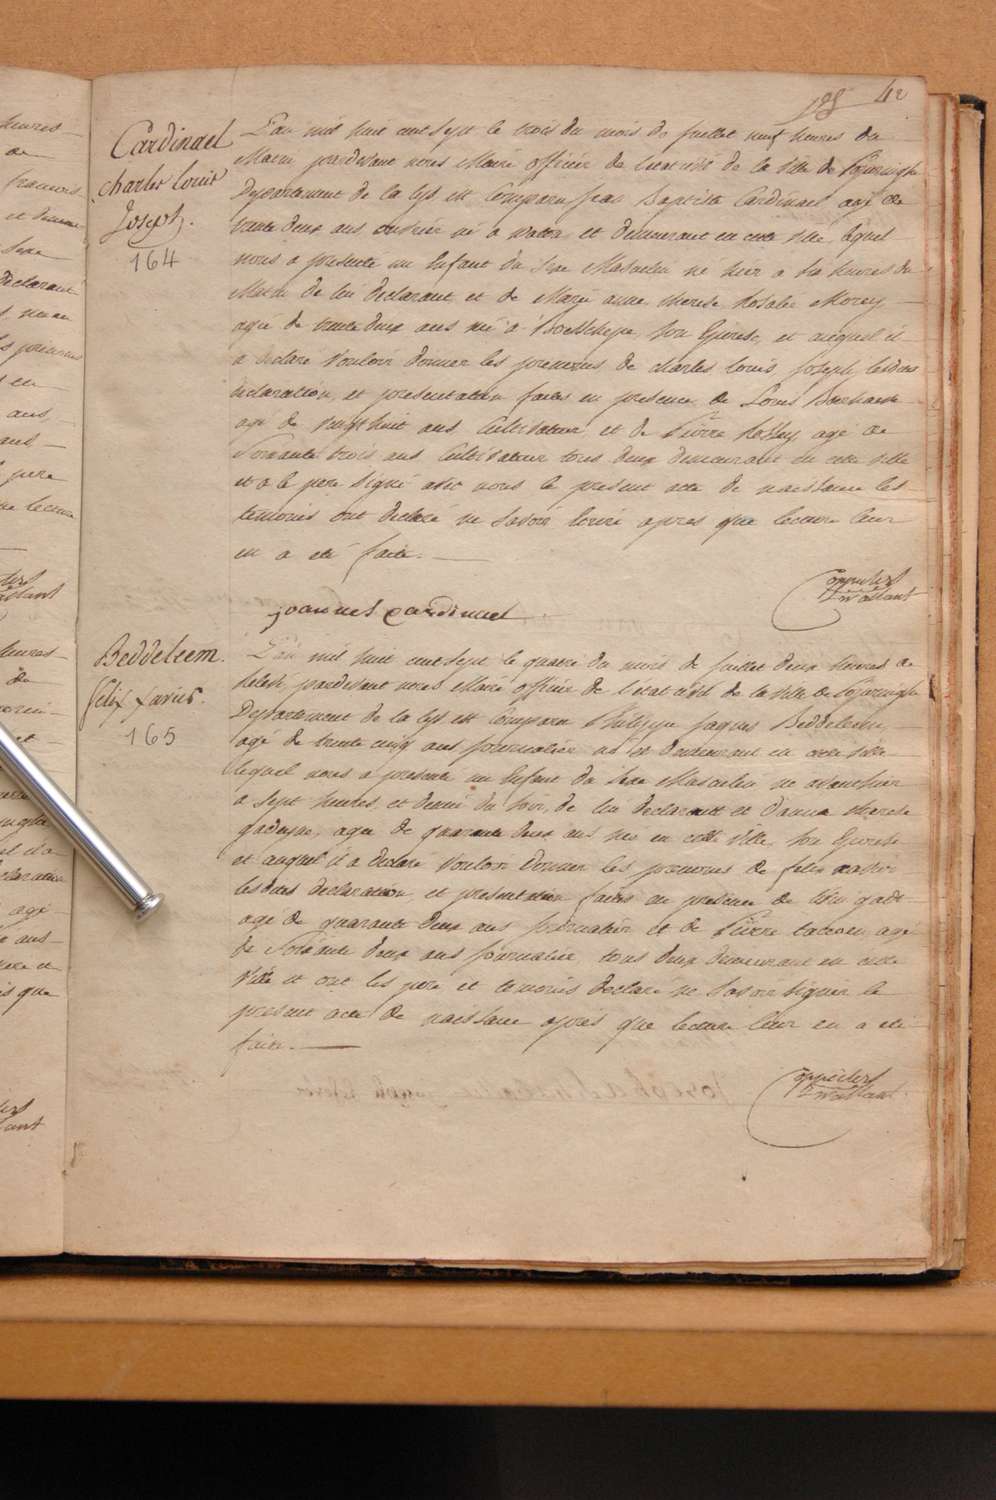 42
Cardinael
Charles Louis
Joseph.
164
L'an mil huit cent sept le trois du mois de juillet neuf heures du
Matin pardevant nous Maire officier de l'etat civil de la ville de Poperinghe
Departement de la Lys est Comparu Jean Baptiste Cardinael agé de
trente deux ans ouvrier né a watou et demeurant en cette ville, lequel
nous a presenté un Enfant du sexe Masculin né hier a six heures du
Matin de lui declarant et de Marie anne therese Rosalie Morey
agée de trente deux ans née a Boesschepe, son Epouse, et auquel il
a declaré vouloir donner les prenoms de charles louis joseph, lesdites
declaration, et presentation faites en presence de Louis
agé de vingt huit ans Cultivateur et de Pierre agé de
Soixante trois ans Cultivateur tous deux demeurant en cette ville
et a le pere signé avec nous le present acte de naissance les
temoins ont declaré ne savoir ecrire apres que lecture leur
en a eté faite.
joannes cardinael
Beddeleem.
felix xavier.
165
L'an mil huit cent sept le quatre du mois de juillet deux heures de
relevé, pardevant nous Maire officier de l'état civil de la ville de Poperinghe
Departement de la Lys est Comparu Philippe Jaques Beddeleem,
agé de trente cinq ans journalier né et demeurant en cette ville
lequel nous a presenté un Enfant du sexe Masculin né avanthier
a sept heures et demi du soir, de lui declarant et d'anne therese
agée de quarante deux ans née en cette ville, son Epouse
et auquel il a declaré vouloir donner les prenoms de felix xavier
lesdites declaration, et presentation faites en presence de
agé de quarante deux ans journalier et de Pierre agé
de Soixante deux ans journalier, tous deux demeurant en cette
ville et ont les pere et temoins declaré ne savoir signer le
present acte de naissance après que lecture leur en a eté
faite.